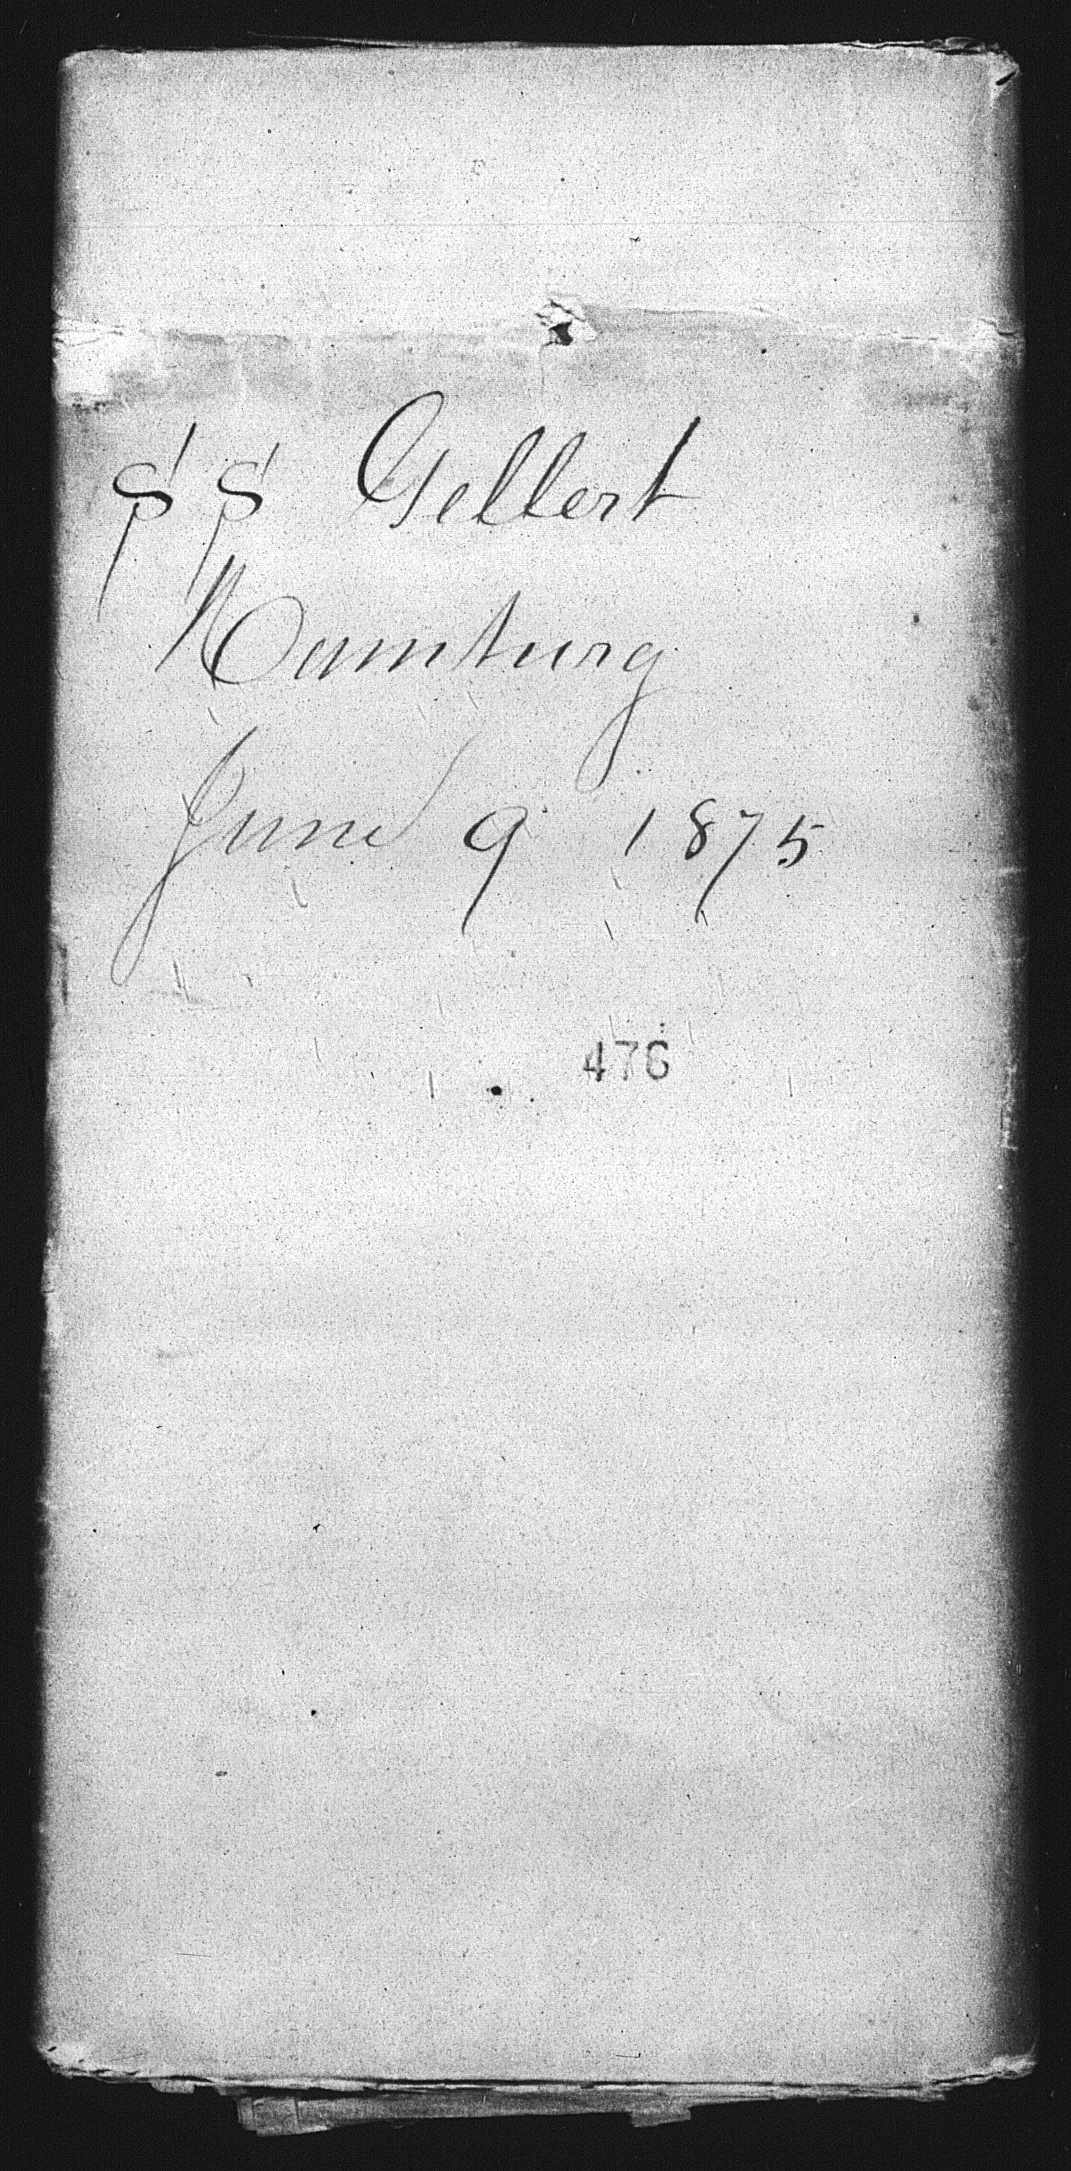 SS Gellert
Hamburg
June 9 1875
476